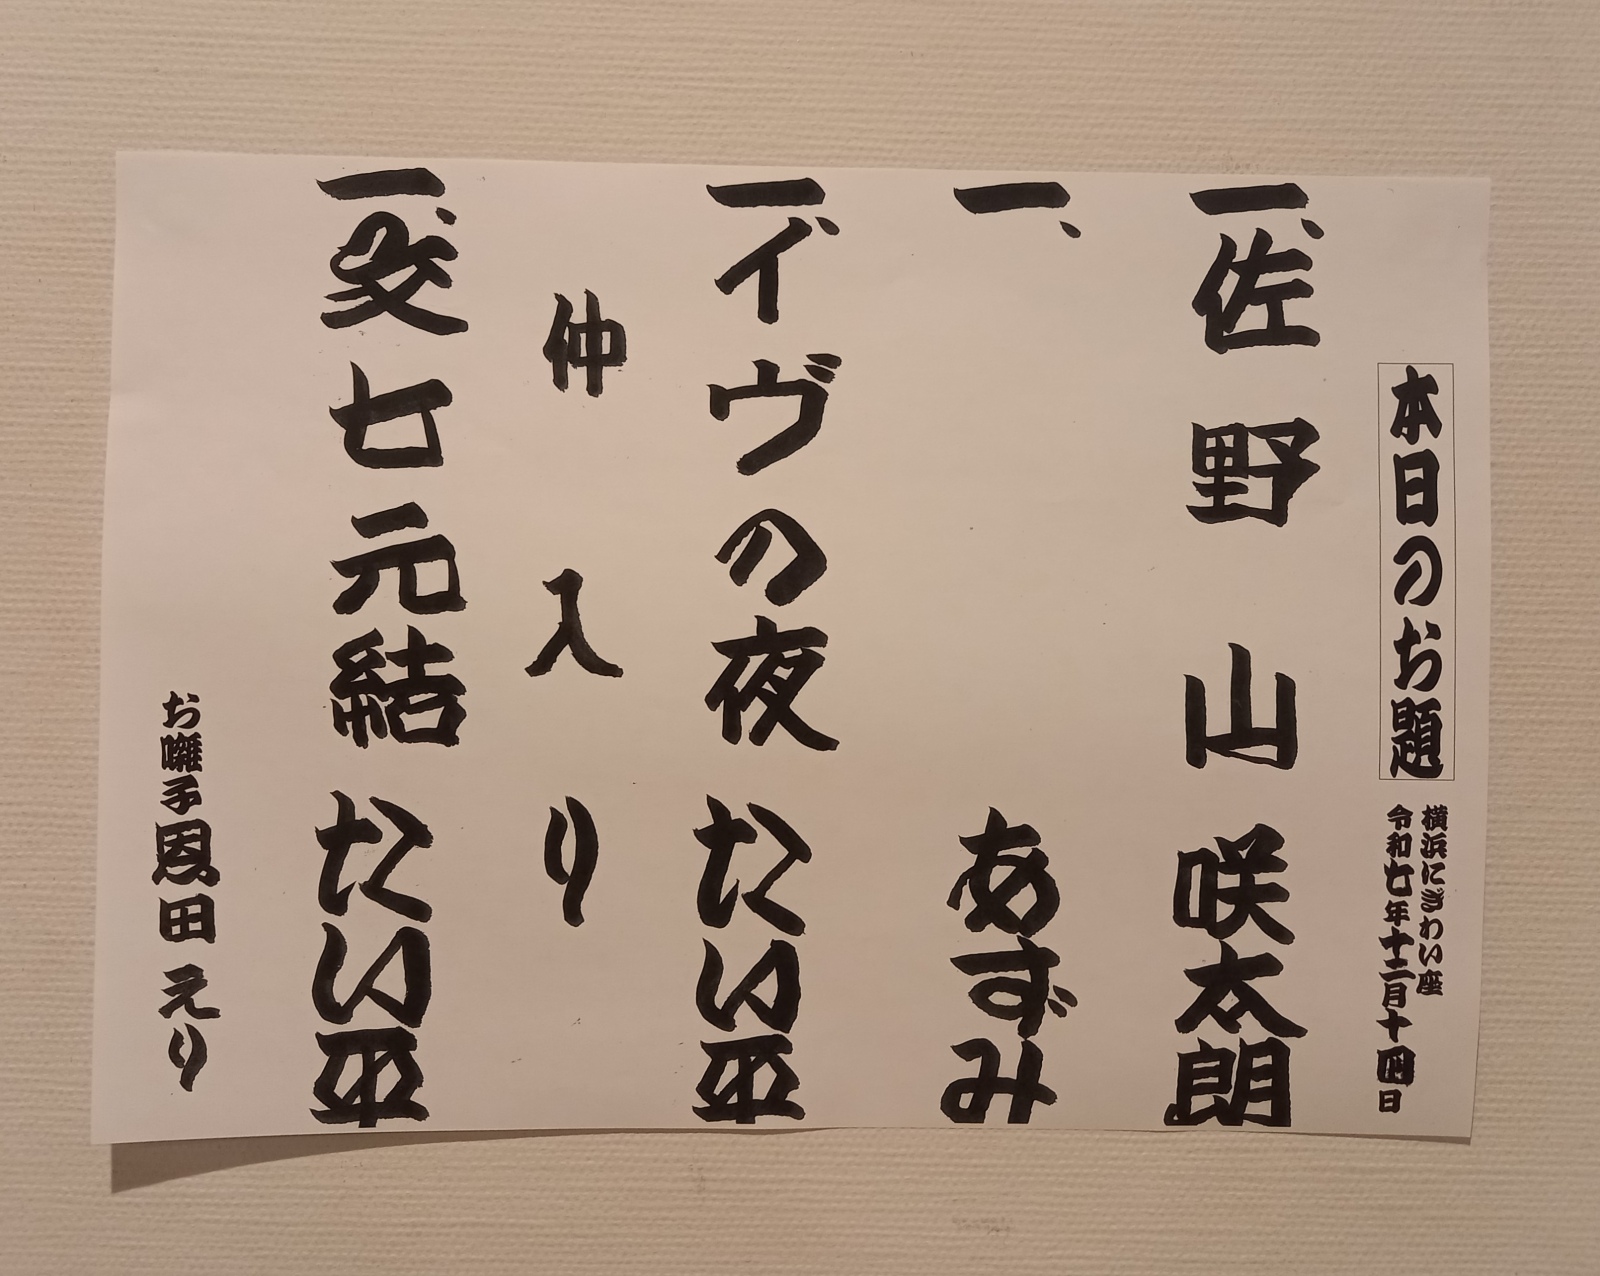 本日のお題
横浜にぎわい座
令和七年十二月十四日
一、佐野山 咲太朗
一、 あずみ
一、イヴの夜 たい平
仲入り
一、文七元結 たい平
お囃子 恩田えり